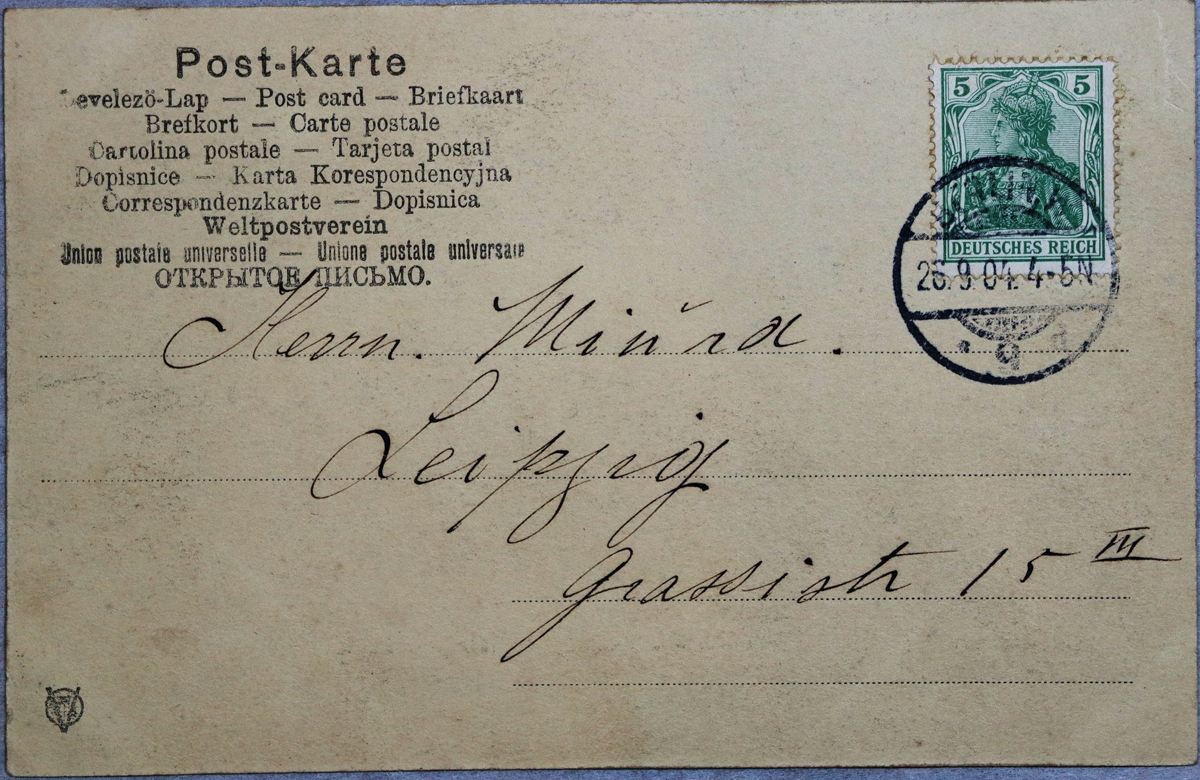 Post-Karte
Levelezö-Lap — Post card — Briefkaart
Brefkort — Carte postale
Cartolina postale — Tarjeta postal
Dopisnice — Karta Korespondencyjna
Correspondenzkarte — Dopisnica
Weltpostverein
Union postale universelle — Unione postale universale
ОТКРЫТОЕ ПИСЬМО.
5 5
DEUTSCHES REICH
26.9.04. 4-5N
Herrn.
Leipzig
Grassistr 15 III